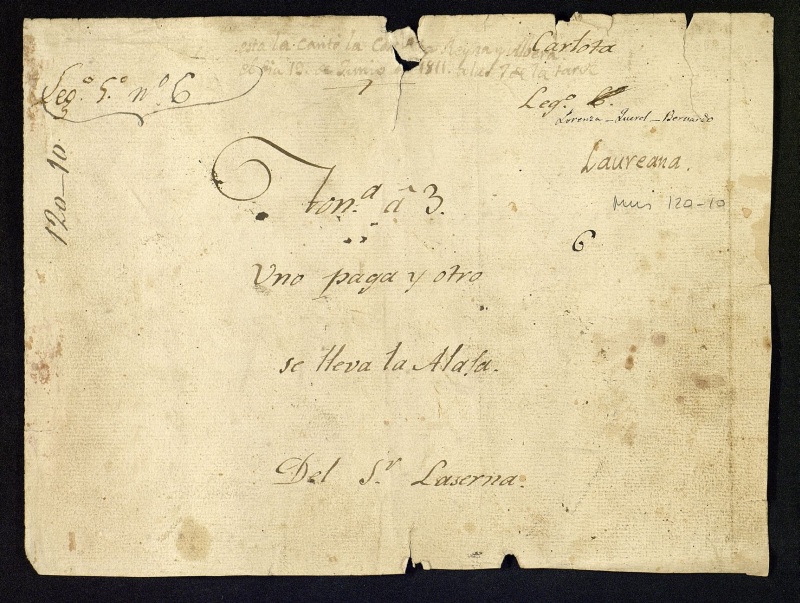 esta la Cantó la
Carlota
el dia 19 de Junio de 1811. a las 7 de la tarde
Leg.º 5.º nº 6
Leg.º 6.
Lorenza - Querol - Bernardo
120-10
Laureana.
Mus 120-10
Ton.ª â 3.
6
Uno paga y otro
se lleva la Alaja.
Del S.r Laserna.